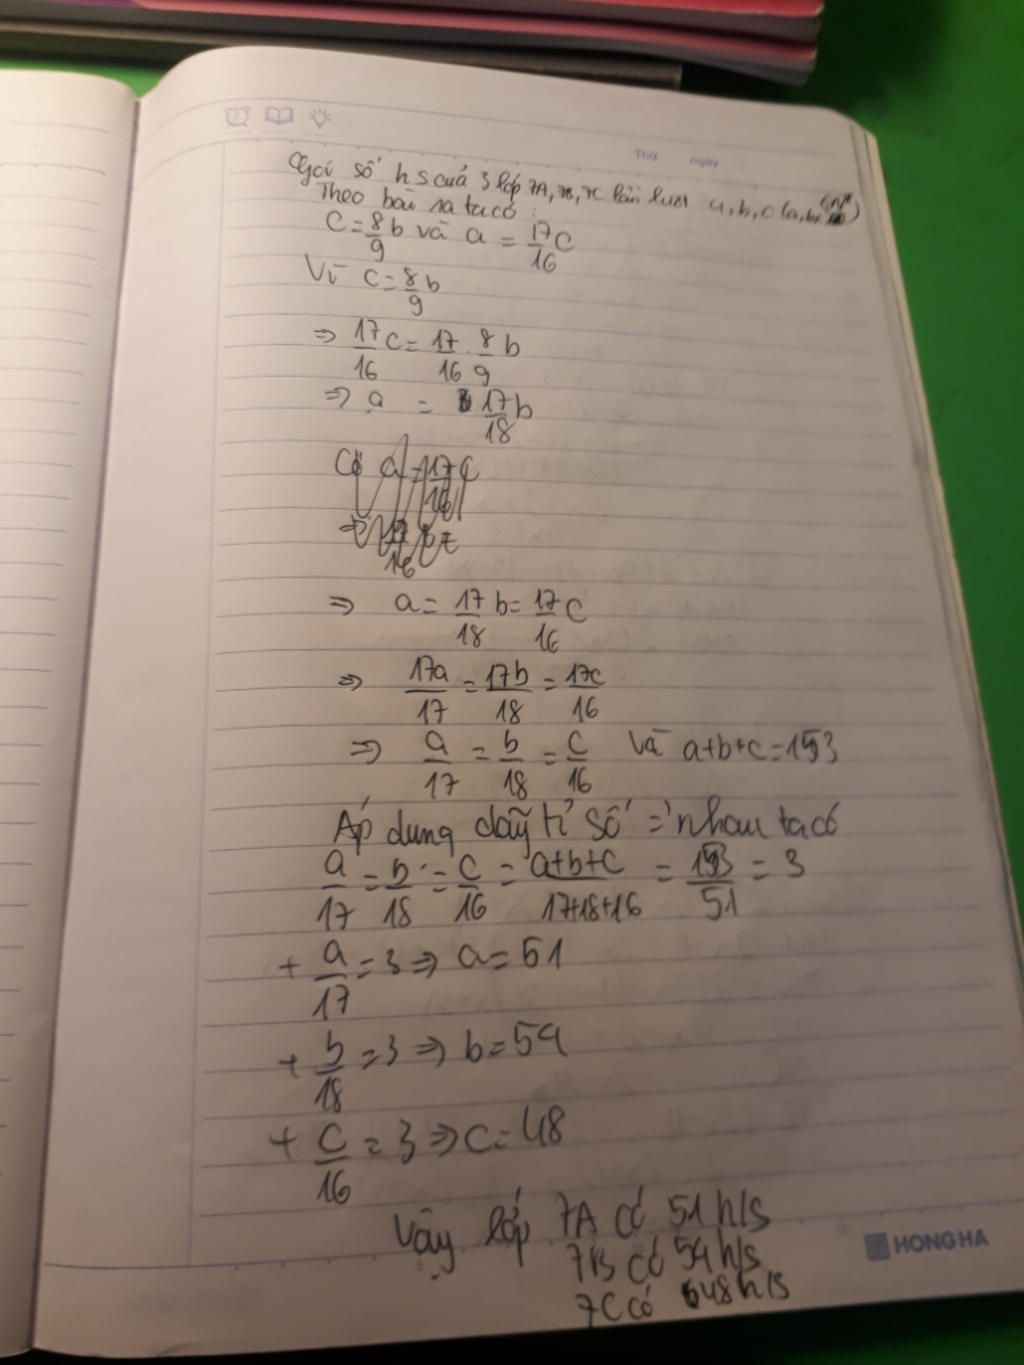 Thứ ngày
Gọi số hs của 3 lớp 7A, 7B, 7C lần lượt a, b, c (a, b, c ∈ N*)
Theo bài ra ta có :
C = 8/9 b và a = 17/16 C
Vì c = 8/9 b
⇒ 17/16 c = 17/16 . 8/9 b
⇒ a = 17/18 b
⇒ a = 17/18 b = 17/16 c
⇒ 17a/17 = 17b/18 = 17c/16
⇒ a/17 = b/18 = c/16 Và a+b+c = 153
Áp dung dãy tỉ số = nhau ta có
a/17 = b/18 = c/16 = a+b+c/17+18+16 = 153/51 = 3
+ a/17 = 3 ⇒ a = 51
+ b/18 = 3 ⇒ b = 54
+ c/16 = 3 ⇒ c = 48
Vậy lớp 7A có 51 h/s
7B có 54 h/s
7C có 48 h/s
HONG HA